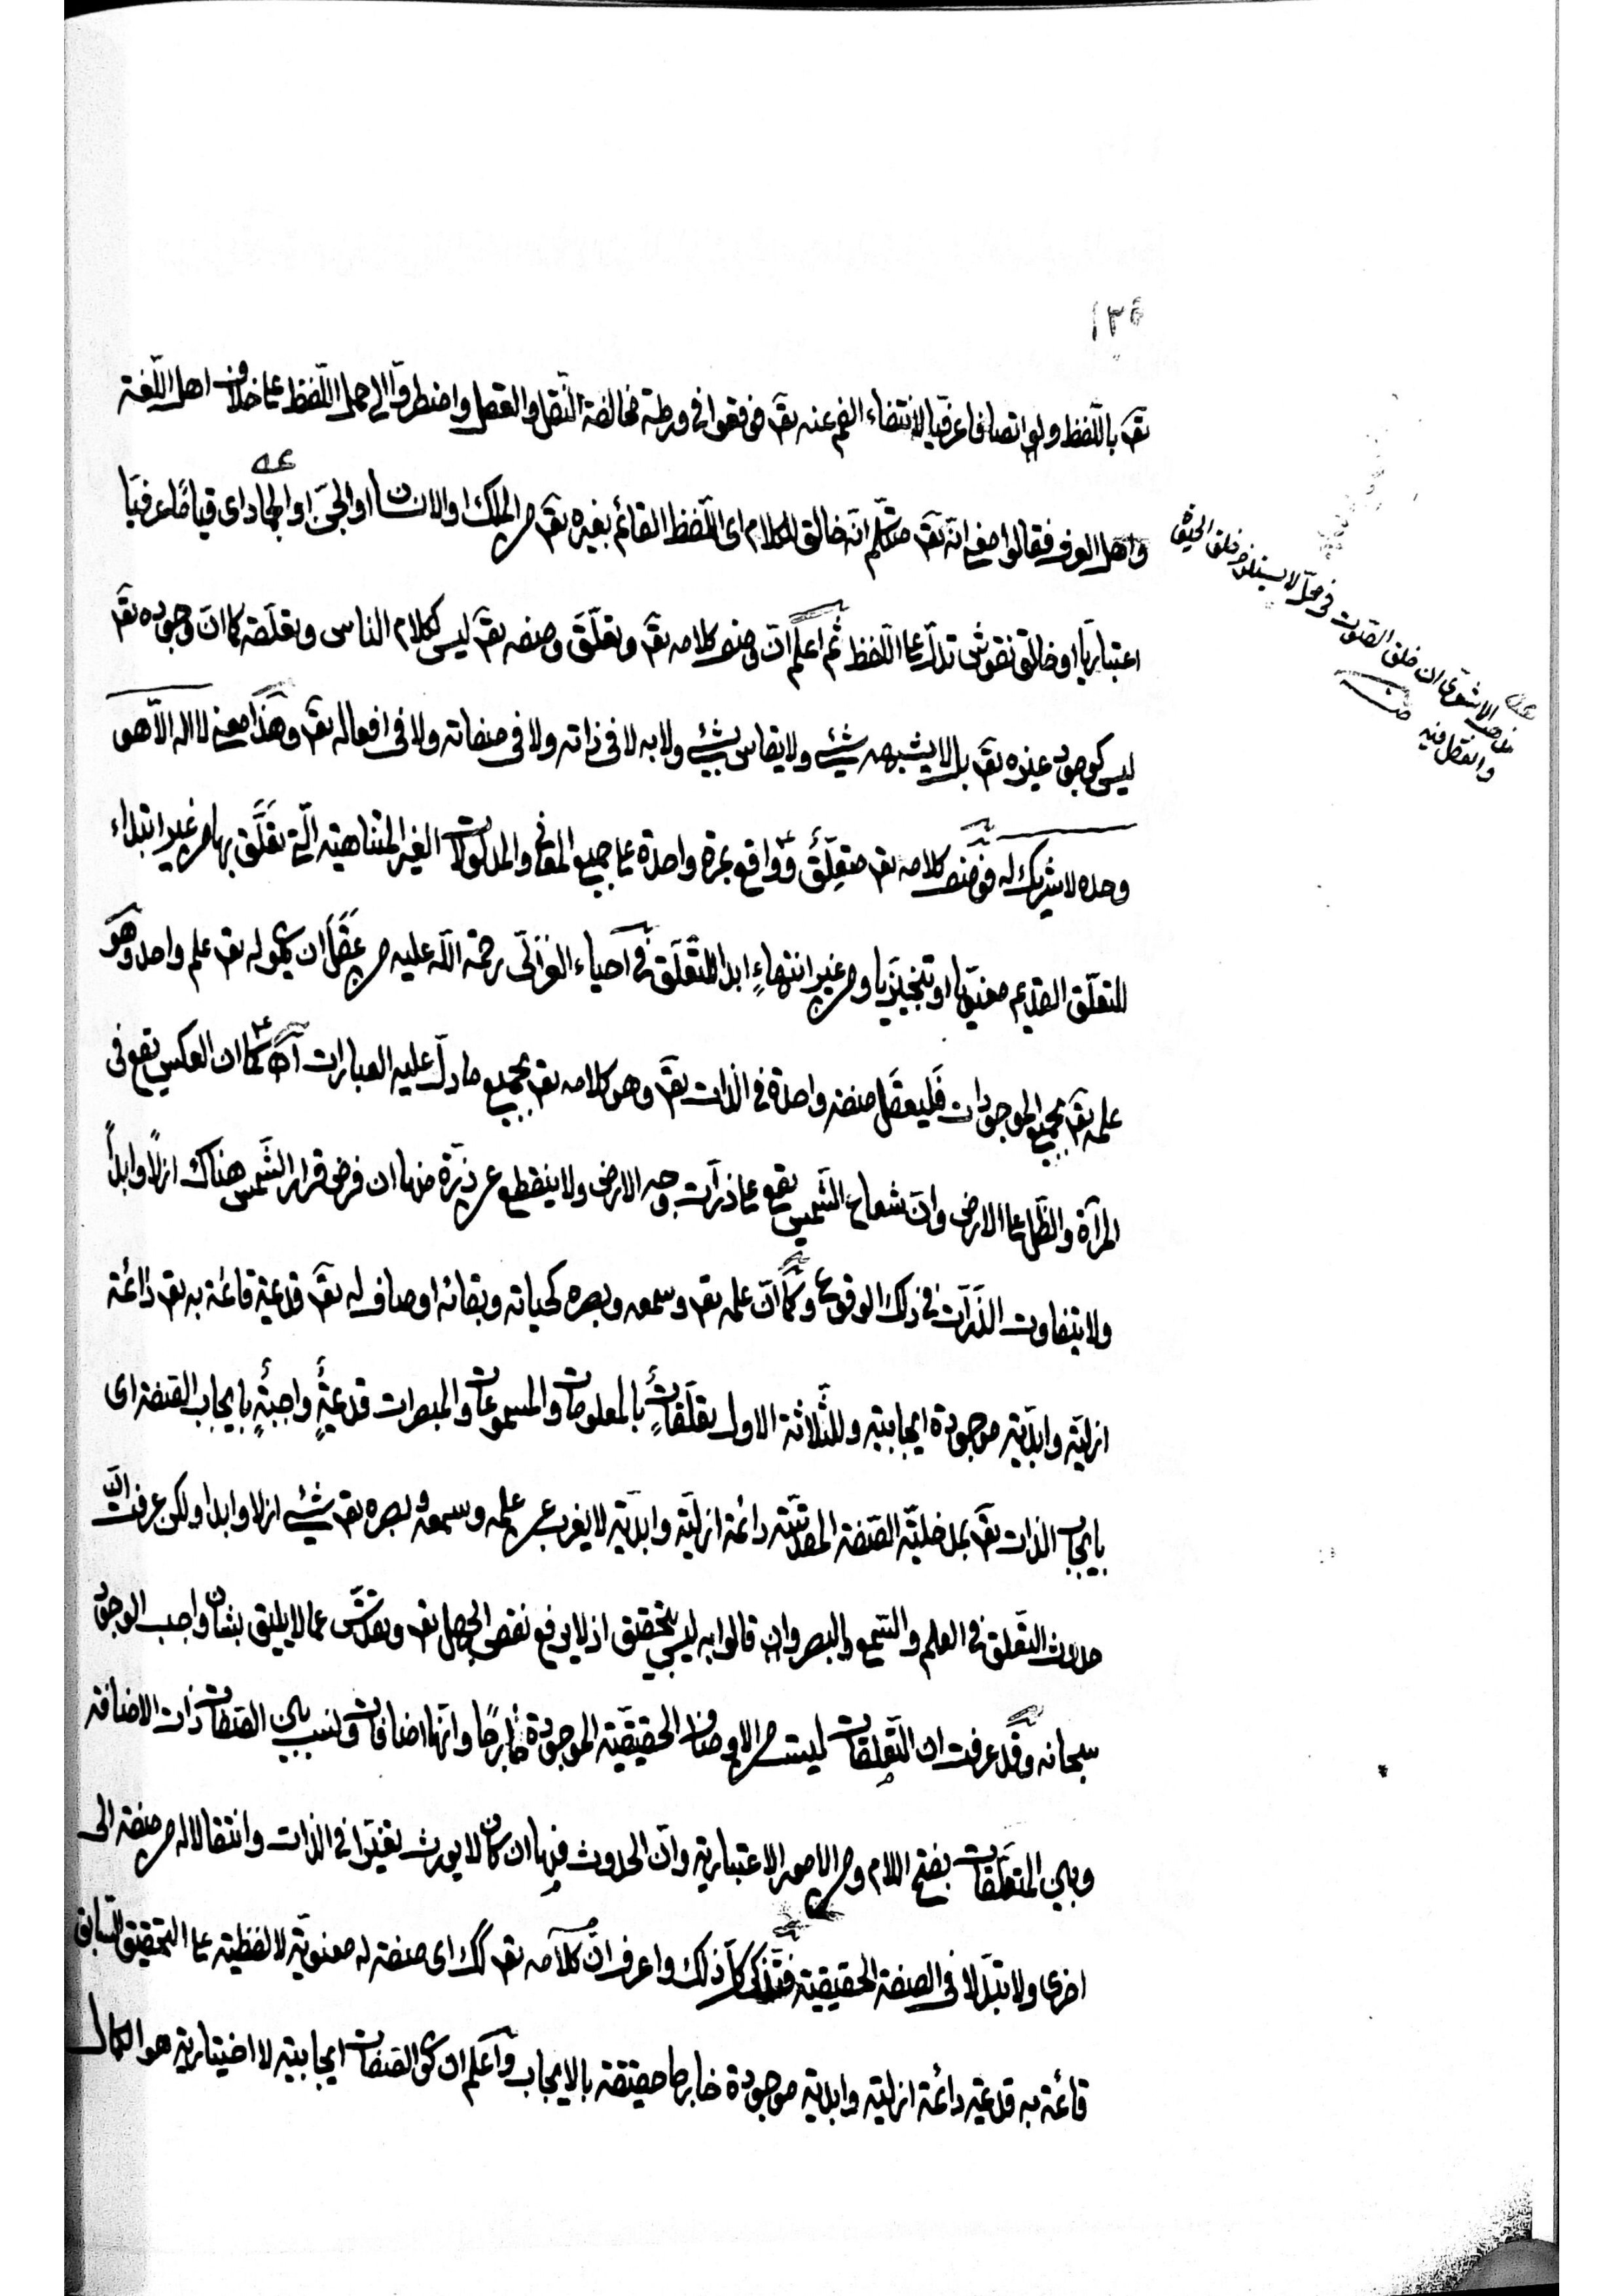 ١٣٥
تع باللفظ ولو اتصافا عرفيا لانتفاء الفم عنه تع فوقعوا في ورطة مخالفة النقل والعقل واضطروا الى حمل اللفظ على خلاف اهل اللغة
واهل العرف فقالوا معنى انه تع متكلم انه خالق الكلام اى اللفظ القائم بغيره تع من الملك او الانسان او الجن او الجماد اى قياما عرفيا
اعتباريا او خالق نقوش تدل على اللفظ ثم اعلم ان وصف كلامه تع وتعلق وصفه تع ليس ككلام الناس وتعلقه كما ان وجوده تع
ليس كوجود غيره تع بل لا يشبهه شيئ ولا يقاس بشيئ ولا به لا في ذاته ولا في صفاته ولا في افعاله تع وهذا معنى لا اله الا هو
وحده لا شريك له فوصف كلامه تع متعلق وواقع بمرة واحدة على جميع المعاني والمدلولات الغير المتناهية التي تعلق بها من غير ابتداء
للتعلق القديم معنويا او تنجيزيا ومن غير انتهاء ابدا للتعلق في احياء الغزالى رحمة الله عليه من عقل ان يكون له تع علم واحد وهو
علمه تع بجميع الموجودات فليعقل صفة واحدة في الذات تع وهو كلامه تع بجميع ما دل عليه العبارات آه كما ان العكس يقع في
المرآة والظل على الارض وان شعاع الشمس يقع على ذرات وجه الارض ولا ينقطع عن ذرة منها ان فرض قرار الشمس هناك ازلا وابدا
ولا يتفاوت الذرات في ذلك الوقوع وكما ان علمه تع وسمعه وبصره كحياته وبقائه اوصاف له تع قديمة قائمة به تع دائمة
ازلية وابدية موجودة ايجابية وللثلاثة الاول تعلقات بالمعلومات والمسموعات والمبصرات قديمة واجبة بايجاب الصفة اى
بايجاب الذات تع بمدخلية الصفة المقدسة دائمة ازلية وابدية لا يغرب عن علمه وسمعه وبصره تع شيئ ازلا وابدا ولكن عرفت ان
حدوث التعلق في العلم والسمع والبصر وان قالوا به ليس بتحقيق اذ لا يرفع نقص الجهل تع وتقدس عما لا يليق بشان واجب الوجود
سبحانه وقد عرفت ان التعلقات ليست من الاوصاف الحقيقية الموجودة خارجا وانها اضافات ونسب بين الصفات ذات الاضافة
وبين المتعلقات بفتح اللام ومن الامور الاعتبارية وان الحدوث فيها ان كان لا يورث تغيرا في الذات وانتقالا له من صفة الى
اخرى ولا تبدلا في الصفة الحقيقية فتذكر كل ذلك واعرف ان كلامه تع كك اى صفة له معنوية لا لفظية على التحقيق السابق
قائمة به قديمة دائمة ازلية وابدية موجودة خارجا حقيقة بالايجاب واعلم ان كون الصفات ايجابية لا اختيارية هو الكمال
مذهب الاشعرى ان خلق الصوت في محل لا يستلزم خلق الحيوة
والعقل فيه منه